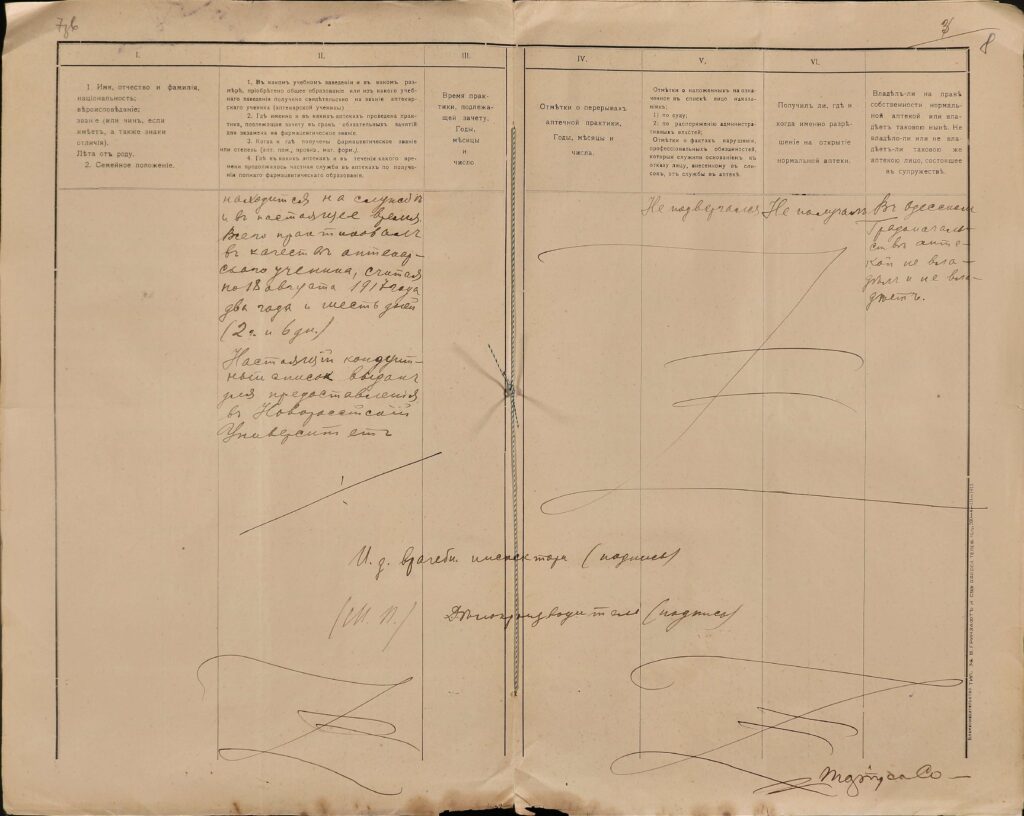 3
8
I.
II.
III.
IV.
V.
VI.
1. Имя, отчество и фамилія,
національность;
вѣроисповѣданіе;
званіе (или чинъ, если
имѣетъ, а также знаки
отличія).
Лѣта отъ роду.
2. Семейное положеніе.
1. Въ какомъ учебномъ заведеніи и въ какомъ раз-
мѣрѣ, пріобрѣтено общее образованіе или изъ какого учеб-
наго заведенія получено свидѣтельство на званіе аптекар-
скаго ученика (аптекарской ученицы)
2. Гдѣ именно и въ какихъ аптекахъ проведена прак-
тика, подлежащая зачету въ срокъ обязательныхъ занятій
для экзамена на фармацевтическое званіе.
3. Когда и гдѣ получены фармацевтическое званіе
или степень (апт. пом., провиз., маг. фарм.).
4. Гдѣ въ какихъ аптекахъ и въ теченіи какого вре-
мени продолжалась частная служба въ аптекахъ по получе-
ніи полнаго фармацевтическаго образованія.
Время прак-
тики, подлежа-
щей зачету.
Годы,
мѣсяцы
и
число
Отмѣтки о перерывахъ
аптечной практики.
Годы, мѣсяцы и
числа.
Отмѣтки о наложенныхъ на озна-
ченное въ спискѣ лицо наказа-
ніяхъ:
1) по суду;
2) по распоряженію администра-
тивныхъ властей;
Отмѣтки о фактахъ нарушенія,
профессіональныхъ обязанностей,
которыя служили основаніемъ къ
отказу лицу, внесенному въ спи-
сокъ, отъ службы въ аптекѣ.
Получилъ ли, гдѣ и
когда именно разрѣ-
шеніе на открытіе
нормальной аптеки.
Владѣлъ-ли на правѣ
собственности нормаль-
ной аптекой или вла-
дѣетъ таковою нынѣ. Не
владѣло-ли или не вла-
дѣетъ-ли таковою же
аптекою лицо, состоящее
въ супружествѣ.
находится на службѣ
и въ настоящее время.
Всего практиковалъ
въ качествѣ аптекар-
скаго ученика, считая
по 18 августа 1917 года
два года и шесть дней
(2 г. и 6 дн.)
Настоящій кондуит-
ный списокъ выданъ
для предоставленія
въ Новороссійскій
Университетъ
Не подвергался
Не получалъ
Въ Одесскомъ
Градоначаль-
ствѣ апте-
кой не вла-
дѣлъ и не вла-
дѣетъ.
И. д. врачебн. инспектора (подпись)
(М. П.) Дѣлопроизводитель (подпись)